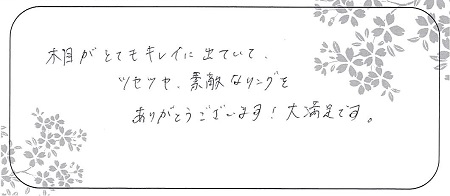 木目がとてもキレイに出ていて、
ツヤツヤ、素敵なリングを
ありがとうございます！大満足です。